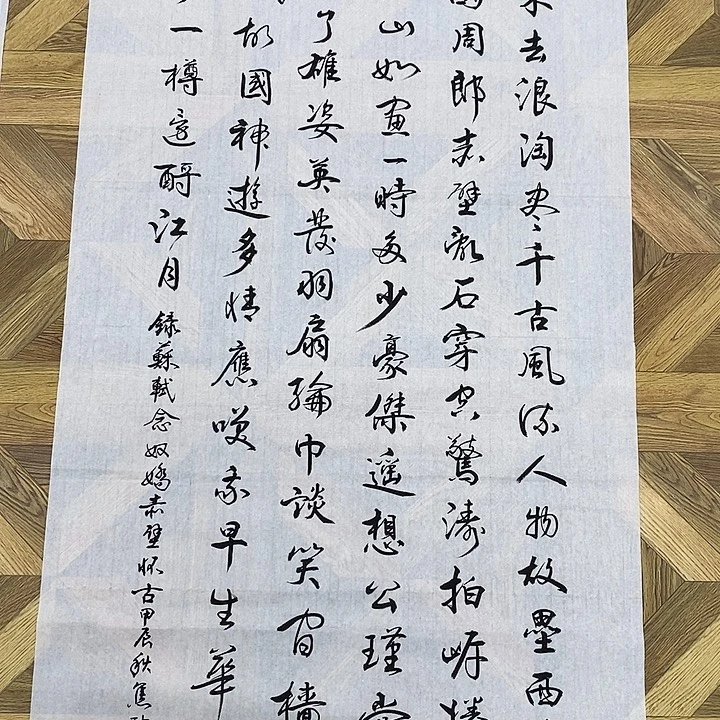 去浪淘尽千古風流人物故壘西
周郎赤壁亂石穿空驚濤拍岸捲
山如畫一時多少豪傑遥想公瑾當
了雄姿英發羽扇綸巾談笑間檣
故國神遊多情應笑我早生華
一樽還酹江月
録蘇軾念奴嬌赤壁懷古甲辰秋焦